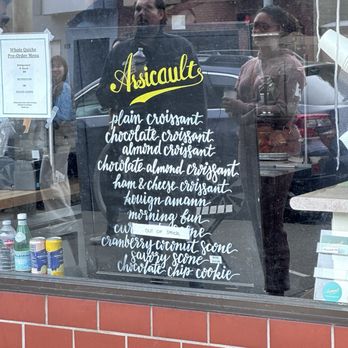 Whole Quiche
Pre-Order Menu
Arsicault
plain croissant
chocolate croissant
almond croissant
chocolate-almond croissant
ham & cheese croissant
kouign amann
morning bun
OUT OF STOCK
cranberry coconut scone
savory scone
chocolate chip cookie